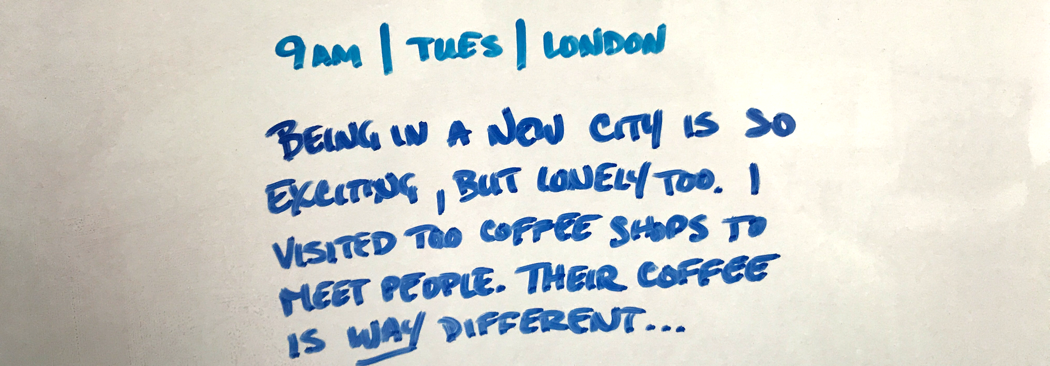 9AM | TUES | LONDON
BEING IN A NEW CITY IS SO
EXCITING, BUT LONELY TOO. I
VISITED TOO COFFEE SHOPS TO
MEET PEOPLE. THEIR COFFEE
IS WAY DIFFERENT...